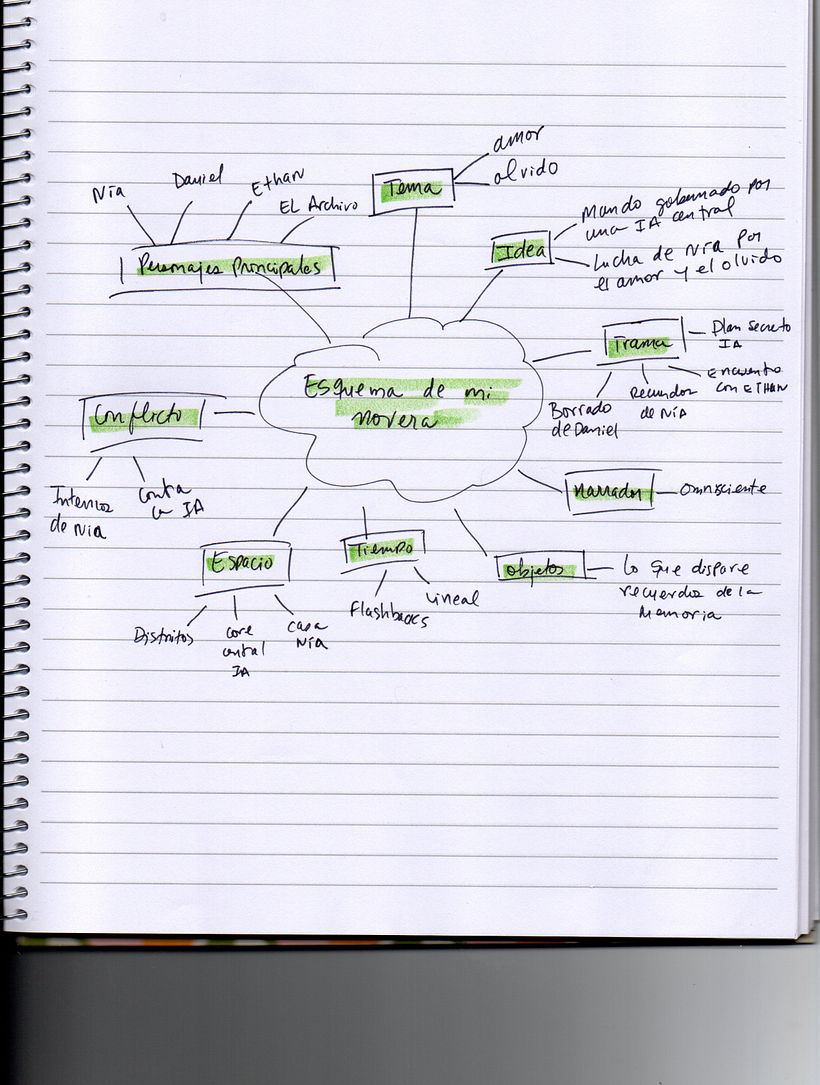 amor
olvido
Tema
Nia
Daniel
Ethan
El Archivo
Personajes Principales
Idea
Mundo gobernado por
una IA central
Lucha de Nia por
el amor y el olvido
Trama
Plan secreto
IA
Encuentro
con ETHAN
Recuerdos
de NIA
Borrado
de Daniel
Esquema de mi
novela
Conflicto
Internos
de Nia
Contra
la IA
Narrador
Omnisciente
Espacio
Distritos
core
central
IA
casa
Nia
Tiempo
Flashbacks
Lineal
Objetos
Lo que dispare
recuerdos de la
Memoria